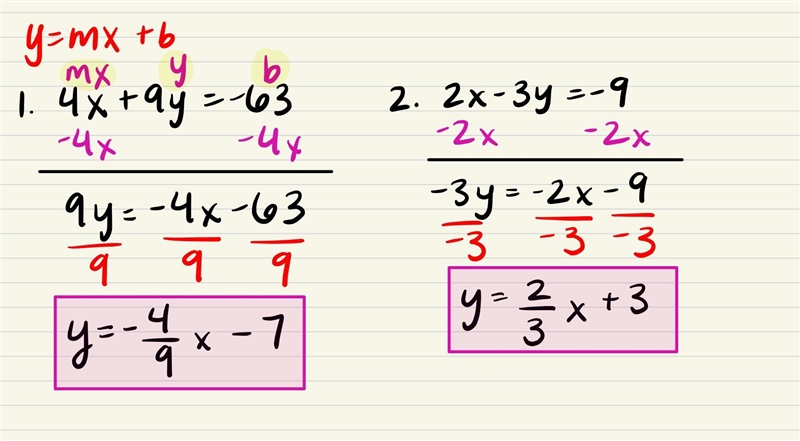 y=mx+b
mx y b
1. 4x+9y=-63
-4x -4x
9y=-4x-63
9 9 9
y=-4/9 x-7
2. 2x-3y=-9
-2x -2x
-3y=-2x-9
-3 -3 -3
y=2/3 x+3